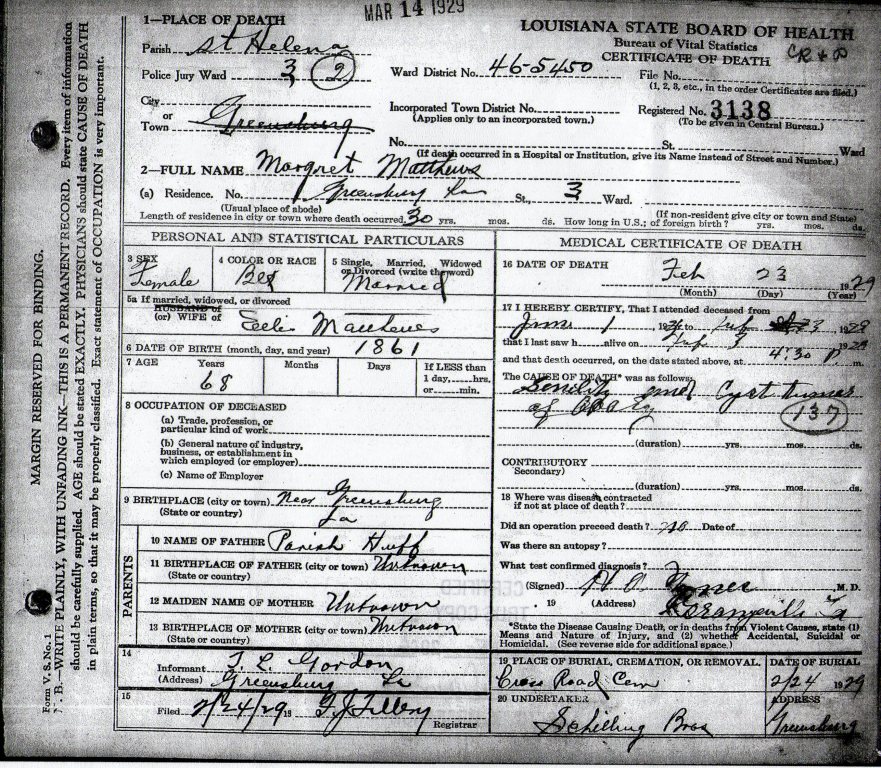 MAR 14 1929
1—PLACE OF DEATH
LOUISIANA STATE BOARD OF HEALTH
Bureau of Vital Statistics
CERTIFICATE OF DEATH
Parish St Helena
Police Jury Ward 3 (2)
Ward District No. 46-5450
File No.
(1, 2, 3, etc., in the order Certificates are filed.)
City
or
Town Greensburg
Incorporated Town District No.
(Applies only to an incorporated town.)
Registered No. 3138
(To be given in Central Bureau.)
No. St. Ward
(If death occurred in a Hospital or Institution, give its Name instead of Street and Number.)
2—FULL NAME Margret Matthews
(a) Residence. No. Greensburg La St., 3 Ward.
(Usual place of abode) (If non-resident give city or town and State)
Length of residence in city or town where death occurred, 30 yrs. mos. ds. How long in U.S.; of foreign birth? yrs. mos. ds.
PERSONAL AND STATISTICAL PARTICULARS
3 SEX
Female
4 COLOR OR RACE
5 Single, Married, Widowed
or Divorced (write the word)
Married
5a If married, widowed, or divorced
HUSBAND of
(or) WIFE of Matthews
6 DATE OF BIRTH (month, day, and year) 1861
7 AGE Years Months Days If LESS than
1 day, hrs.
or min.
68
8 OCCUPATION OF DECEASED
(a) Trade, profession, or
particular kind of work
(b) General nature of industry,
business, or establishment in
which employed (or employer)
(c) Name of Employer
9 BIRTHPLACE (city or town) Near Greensburg
(State or country) La
PARENTS
10 NAME OF FATHER Parish Huff
11 BIRTHPLACE OF FATHER (city or town) Unknown
(State or country)
12 MAIDEN NAME OF MOTHER Unknown
13 BIRTHPLACE OF MOTHER (city or town) Unknown
(State or country)
14
Informant T. L. Gordon
(Address) Greensburg La
15
Filed 2/24/29 19
Registrar
MEDICAL CERTIFICATE OF DEATH
16 DATE OF DEATH Feb 23 1929
(Month) (Day) (Year)
17 I HEREBY CERTIFY, That I attended deceased from
1 19 to 23 1928
that I last saw h alive on 3 19
and that death occurred, on the date stated above, at 4:30 P. m.
The CAUSE OF DEATH* was as follows:
Senility and Cyst
of
(137)
(duration) yrs. mos. ds.
CONTRIBUTORY
Secondary)
(duration) yrs. mos. ds.
18 Where was disease contracted
if not at place of death?
Did an operation preceed death? no Date of
Was there an autopsy?
What test confirmed diagnosis?
(Signed) M. D.
19 (Address) La
*State the Disease Causing Death, or in deaths from Violent Causes, state (1)
Means and Nature of Injury, and (2) whether Accidental, Suicidal or
Homicidal. (See reverse side for additional space.)
19 PLACE OF BURIAL, CREMATION, OR REMOVAL.
Cross Road Cem
DATE OF BURIAL
2/24 1929
20 UNDERTAKER
Schilling Bros
ADDRESS
Greensburg
MARGIN RESERVED FOR BINDING.
Form V. S. No. 1
B.—WRITE PLAINLY, WITH UNFADING INK—THIS IS A PERMANENT RECORD, Every item of information
should be carefully supplied. AGE should be stated EXACTLY, PHYSICIANS should state CAUSE OF DEATH
in plain terms, so that it may be properly classified. Exact statement of OCCUPATION is very important.